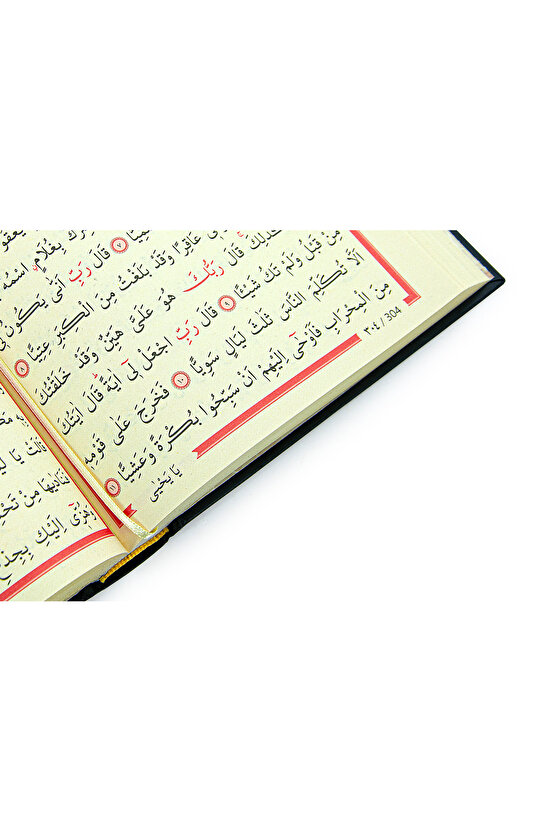 بِغُلَامٍ اسْمُهُ
قَالَ رَبِّ اَنّٰى يَكُونُ ٧
عَاقِرًا وَقَدْ بَلَغْتُ مِنَ الْكِبَرِ عِتِيًّا ٨
قَالَ رَبُّكَ هُوَ عَلَىَّ هَيِّنٌ وَقَدْ خَلَقْتُكَ
مِنْ قَبْلُ وَلَمْ تَكُ شَيْئًا ٩ قَالَ رَبِّ اجْعَلْ لٖٓى اٰيَةً قَالَ اٰيَتُكَ
اَلَّا تُكَلِّمَ النَّاسَ ثَلٰثَ لَيَالٍ سَوِيًّا ١٠ فَخَرَجَ عَلٰى قَوْمِهٖ
مِنَ الْمِحْرَابِ فَاَوْحٰٓى اِلَيْهِمْ اَنْ سَبِّحُوا بُكْرَةً وَعَشِيًّا ١١
يَا يَحْيٰى
٣٠٤ / 304
قَالَتْ يَا
فَنَادٰيهَا مِنْ
وَهُزّٖٓى اِلَيْكِ بِجِذْعِ